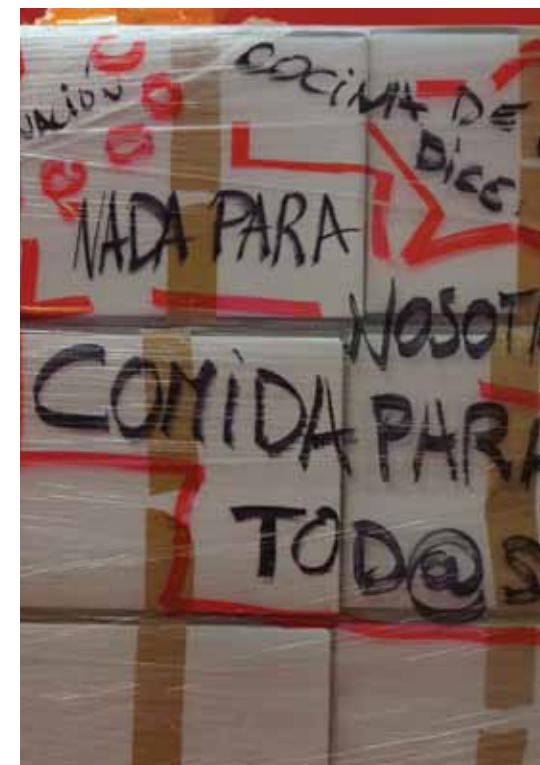 VACIÓN
COCINA DE
DICE
NADA PARA
NOSOT
COMIDA PARA
TOD@S